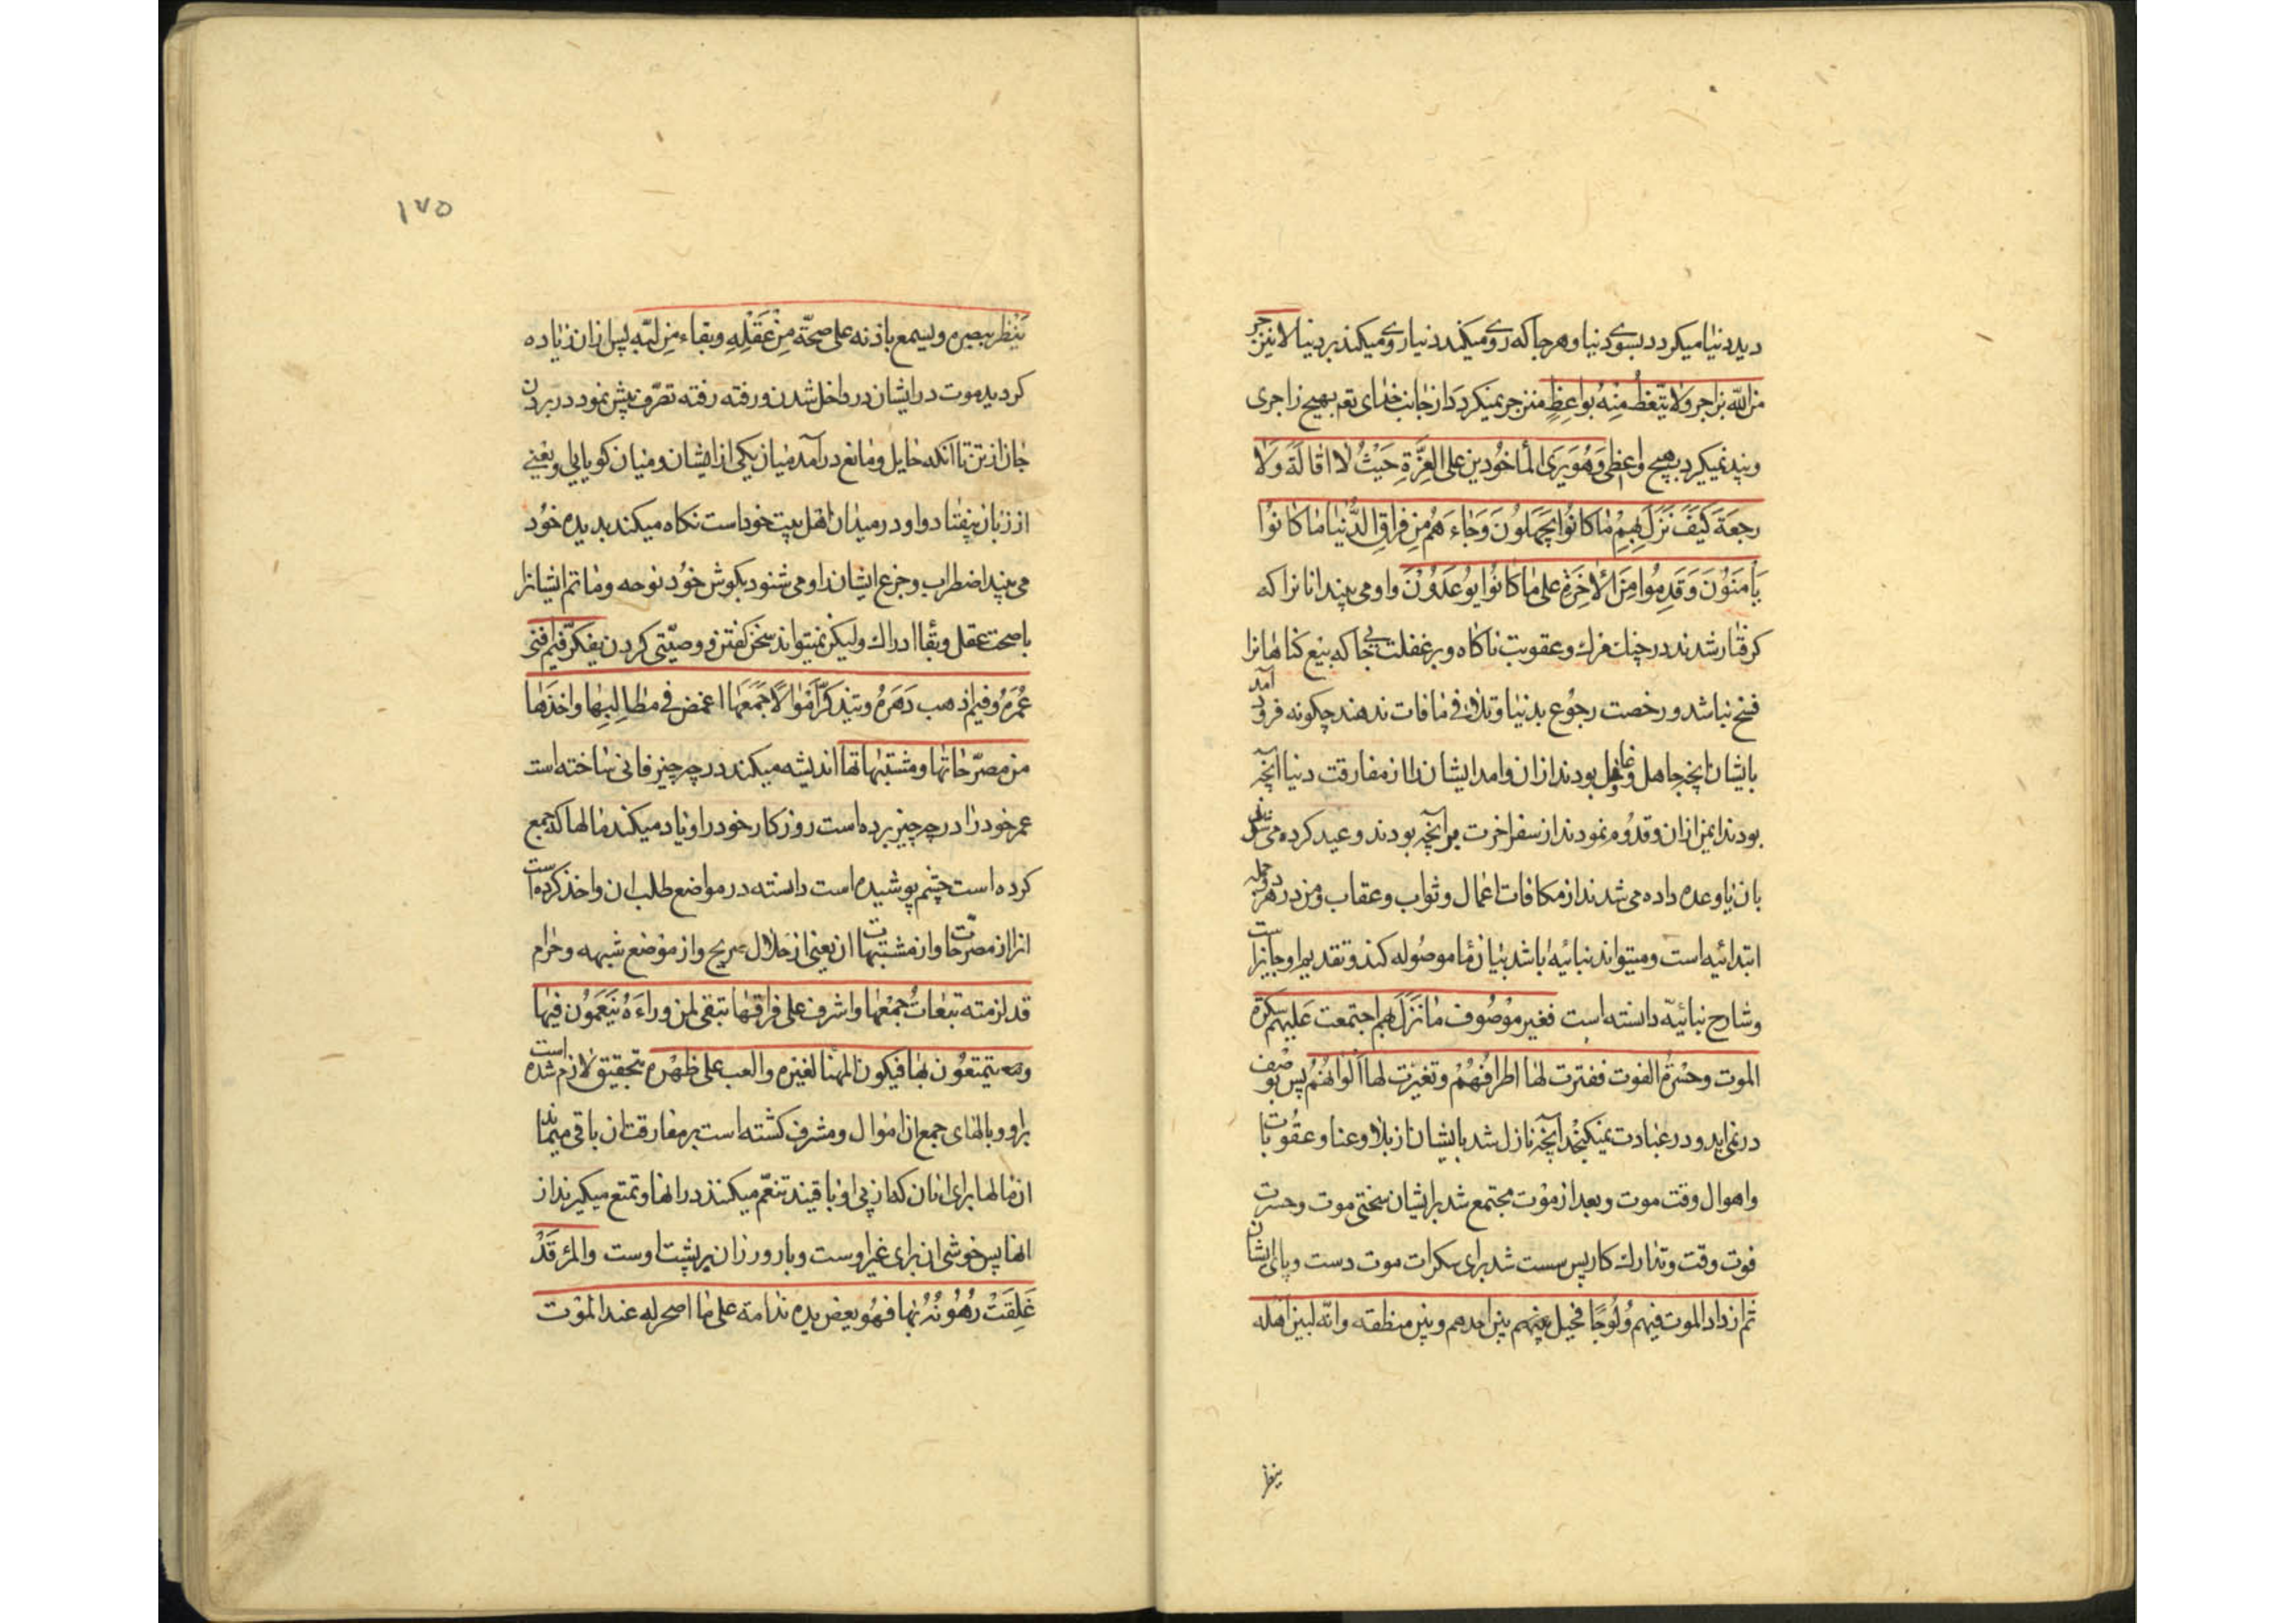 دید دنیا میکردد بسوی دنیا و هر جا که روی میکند دنیا روی میکند بر دنیا لا ینزجر
من الله بزاجر وَلا یتّعظُ مِنهُ بواعِظٍ منزجر نمیکردد از جانب خدای تعم بهیچ زاجری
و پند نمیکیرد بهیچ واعظی وَهُوَ یَرَی المأخُوذین علی العِزَّةِ حَیْثُ لا اقالَةَ وَلا
رجعَةَ کَیْفَ نَزَلَ بِهِمْ مٰا کانُوا یَجهَلُونَ وَجٰاءَ هُم مِن فراقِ الدُّنیٰا مٰا کانُوا
یَأمَنُوُنَ وَقَدِمُوا مِنَ الْاٰخِرَةِ علی مٰا کانُوا یُوعَدُوُنْ و او می بیند انانرا که
کرفتار شدند در چنك مرك و عقوبت ناکاه و بر غفلت بی جا که بیع کناهانرا
فسخ نباشد و رخصت رجوُع بدنیا و تلافی مافات ندهند چکونه فرود آمد
بایشان انچه جاهل و غافل بودند ازان و امد ایشان را از مفارقت دنیا آنچه
بودند ایمن ازان و قدوُم نمودند از سفر اخرت بر آنچه بودند وعید کرده می شدند
بان یا وعده داده می شدند از مکافات اعمال و ثواب و عقاب و من در هر دو جمله
ابتدائیه است و میتواند بیانیه باشد بیان مٰا موصُوله کند و تقدیم او جایز است
و شارح بیانیّه دانسته است فغیر موْصُوف مٰا نَزَلَ بهم اجتمعت عَلیهم سکرة
الموت وحسْرةُ الفوت ففترت لهٰا اطرافُهُمْ و تغیّرت لها أَلوانُهُمْ پس بوصْف
در نمی اید و در عبادت نمیکنجد آنچه نازل شد بایشان از بلا و عنا و عقوبات
و اهوال وقت موت و بعد از موْت مجتمع شد بر ایشان سختی موت و حسرت
فوت وقت و تدارك کار پس سست شد برای سکرات موت دست و پای ایشان
ثم ازداد الموت فیهم وُلوُجًا فحیل بینهم بین احدهم و بین منطقه و انّه لبین اهله
ینظر
١٧٥
یَنْظر ببصره و یسمع باذنه علی صحّة مِنْ عَقْلِهِ و بقاء مِن لبّه پس ازان زیاده
کردید موت در ایشان در داخل شدن و رفته رفته تصرّف پیش نمود در بردن
جان از تن تا آنکه حٰایل و مانع در آمد میان یکی از ایشان و میان کویایی او یعنی
از زبان بیفتاد و او در میدان اهل بیت خود است نکاه میکند بدیده خوُد
می بیند اضطراب و جزع ایشان را و می شنود بکوش خوُد نوحه و ماتم ایشانرا
با صحت عقل و بقا ادراك و لیکن نمیتواند سخن کفتن و وصیّتی کردن یفکّر فیم افنی
عُمرَهُ وفیم اذهب دَهَرهُ و یتذکّر أموٰالاً جَمَعَهٰا اغمض فی مطالِبِها و اخذها
من مصرّحاتها و مشتبهاتها اندیشه میکند در چه چیز فانی ساخته است
عمر خود را و در چه چیز برده است روزکار خود را و یاد میکند مالها که جمع
کرده است چشم پوشیده است دانسته در مواضع طلب ان و اخذ کرده است
انرا از مصرّحات و از مشتبهات ان یعنی از حلال صریح و از موْضع شبهه و حرام
قد لزمته تبعٰاتُ جمْعِها و اشرف علی فراقهٰا تبقی لمن ورٰاءَهُ یَنَعَمُون فیهٰا
و یتمتعوُن بهٰا فیکون المهنا لغیره و العب علی ظَهْره بتحقیق لازم شده است
بر او وبالهای جمع ان امٰوال و مشرف کشته است بر مفارقت ان باقی میماند
ان مالها برای انان که از پی او باقیند تنعّم میکنند در انها و تمتع میکیرند از
انها پس خوشی ان برای غیر اوست و بار و رزان بر پشت اوست والمرْ قَدْ
غَلِقَتْ رُهُوُنُهُ بها فهُو یعض یده ندامة علی مٰا اصحر له عند الموْت